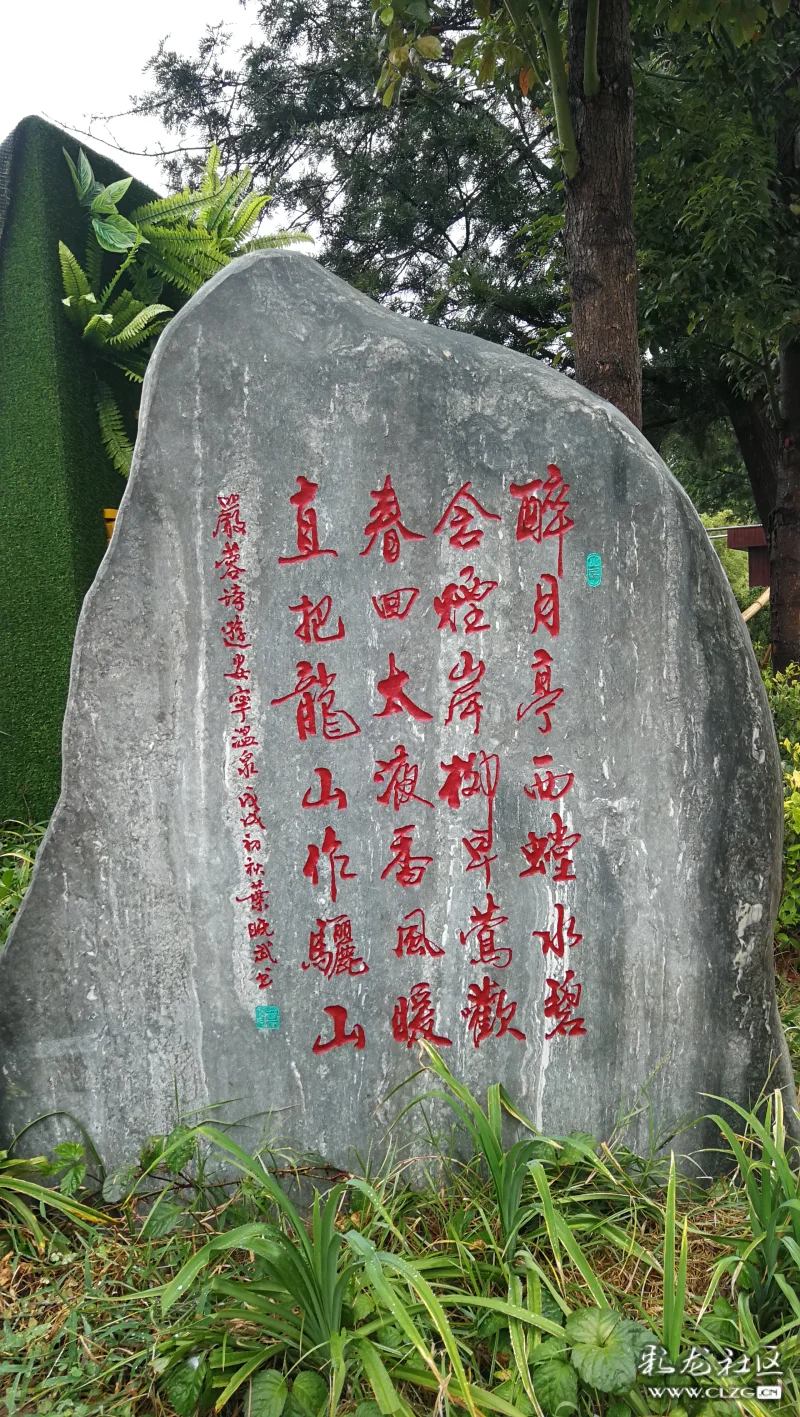 醉月亭西螳水碧
含煙岸柳早鶯歡
春回太液香風暖
直把龍山作驪山
嚴蓉詩遊安寧溫泉戊戌初秋葉曉武书
彩龙社区
WWW.CLZG.CN